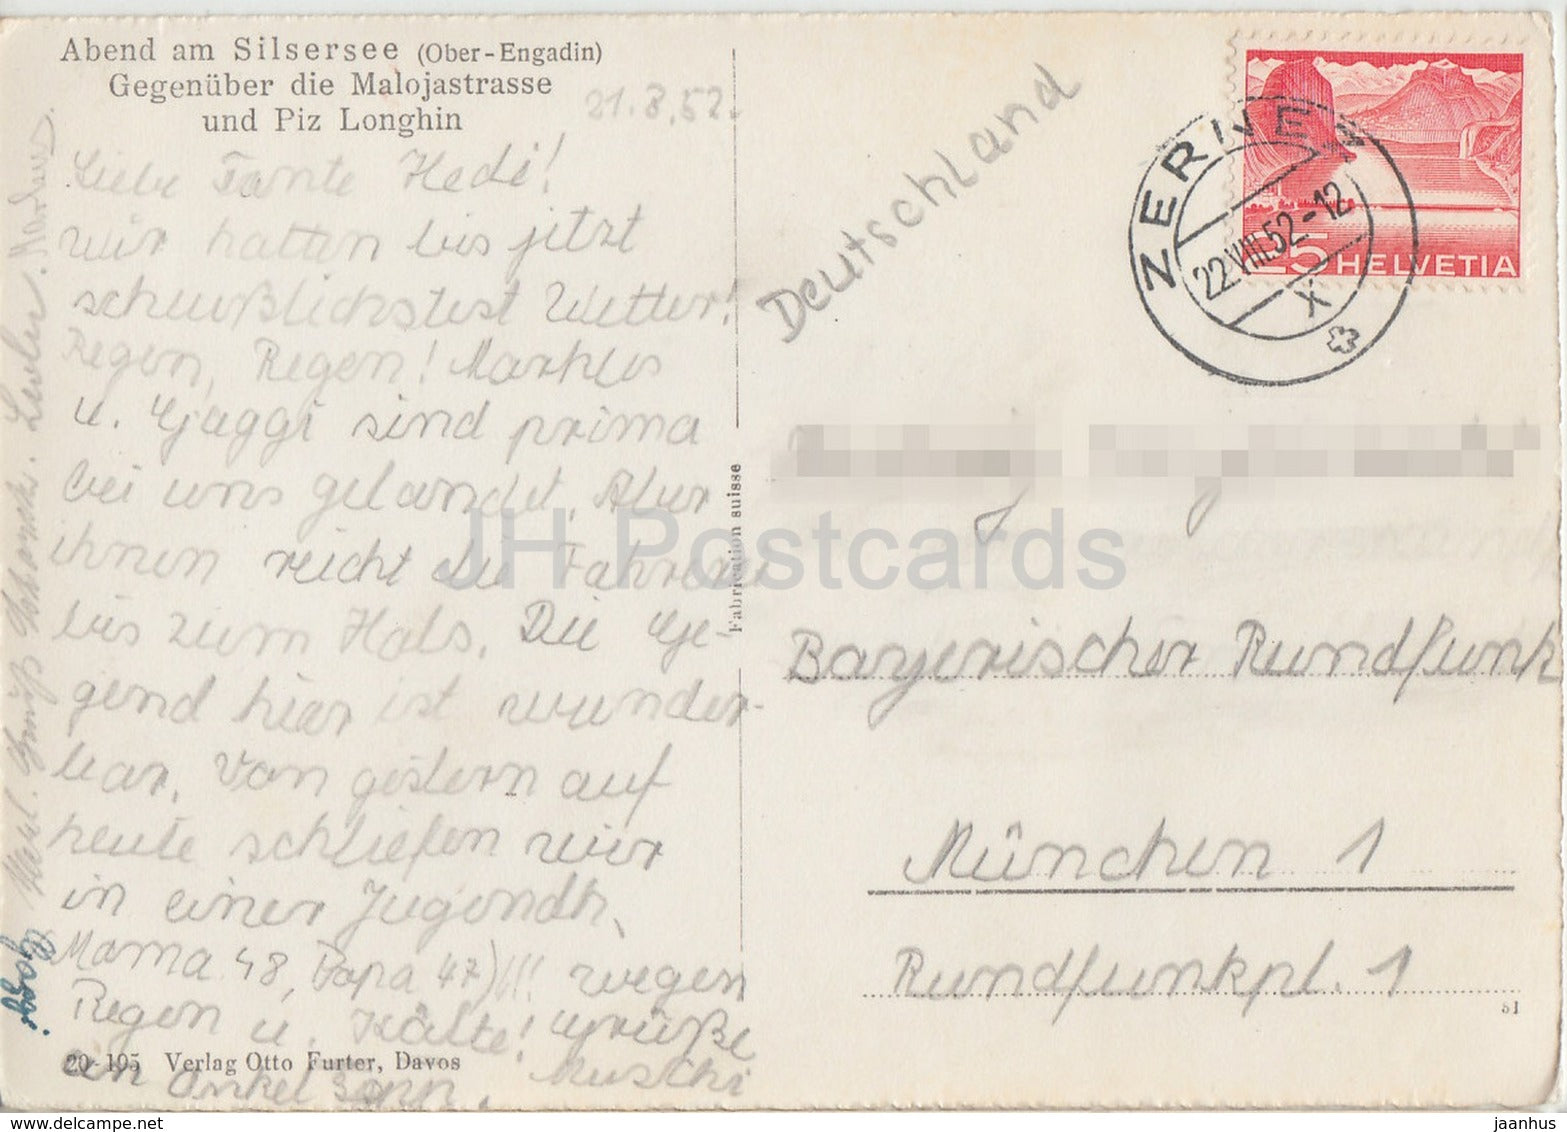 Abend am Silsersee (Ober-Engadin)
Gegenüber die Malojastrasse
und Piz Longhin
21.8.52.
Liebe Tante Hedi!
wir hatten bis jetzt
scheußlichstest Wetter!
Regen, Regen! Markus
u. Gaggi sind prima
bei uns gelandet. Nur
ihnen reicht die
bis zum Hals. Die Ge-
gend hier ist wunder-
bar. Von gestern auf
heute schliefen wir
in einer Jugendh.
Mama 48, Papa 47)!!! wegen
Regen u. Kälte! Grüße
an Onkel
Muschi
Gruß
Markus.
Gaggi
20-105 Verlag Otto Furter, Davos
Fabrication suisse
Deutschland
ZERNEZ
22.VIII.52-12
X
25 HELVETIA
Bayerischer Rundfunk
München 1
Rundfunkpl. 1
51
JH Postcards
jaanhus